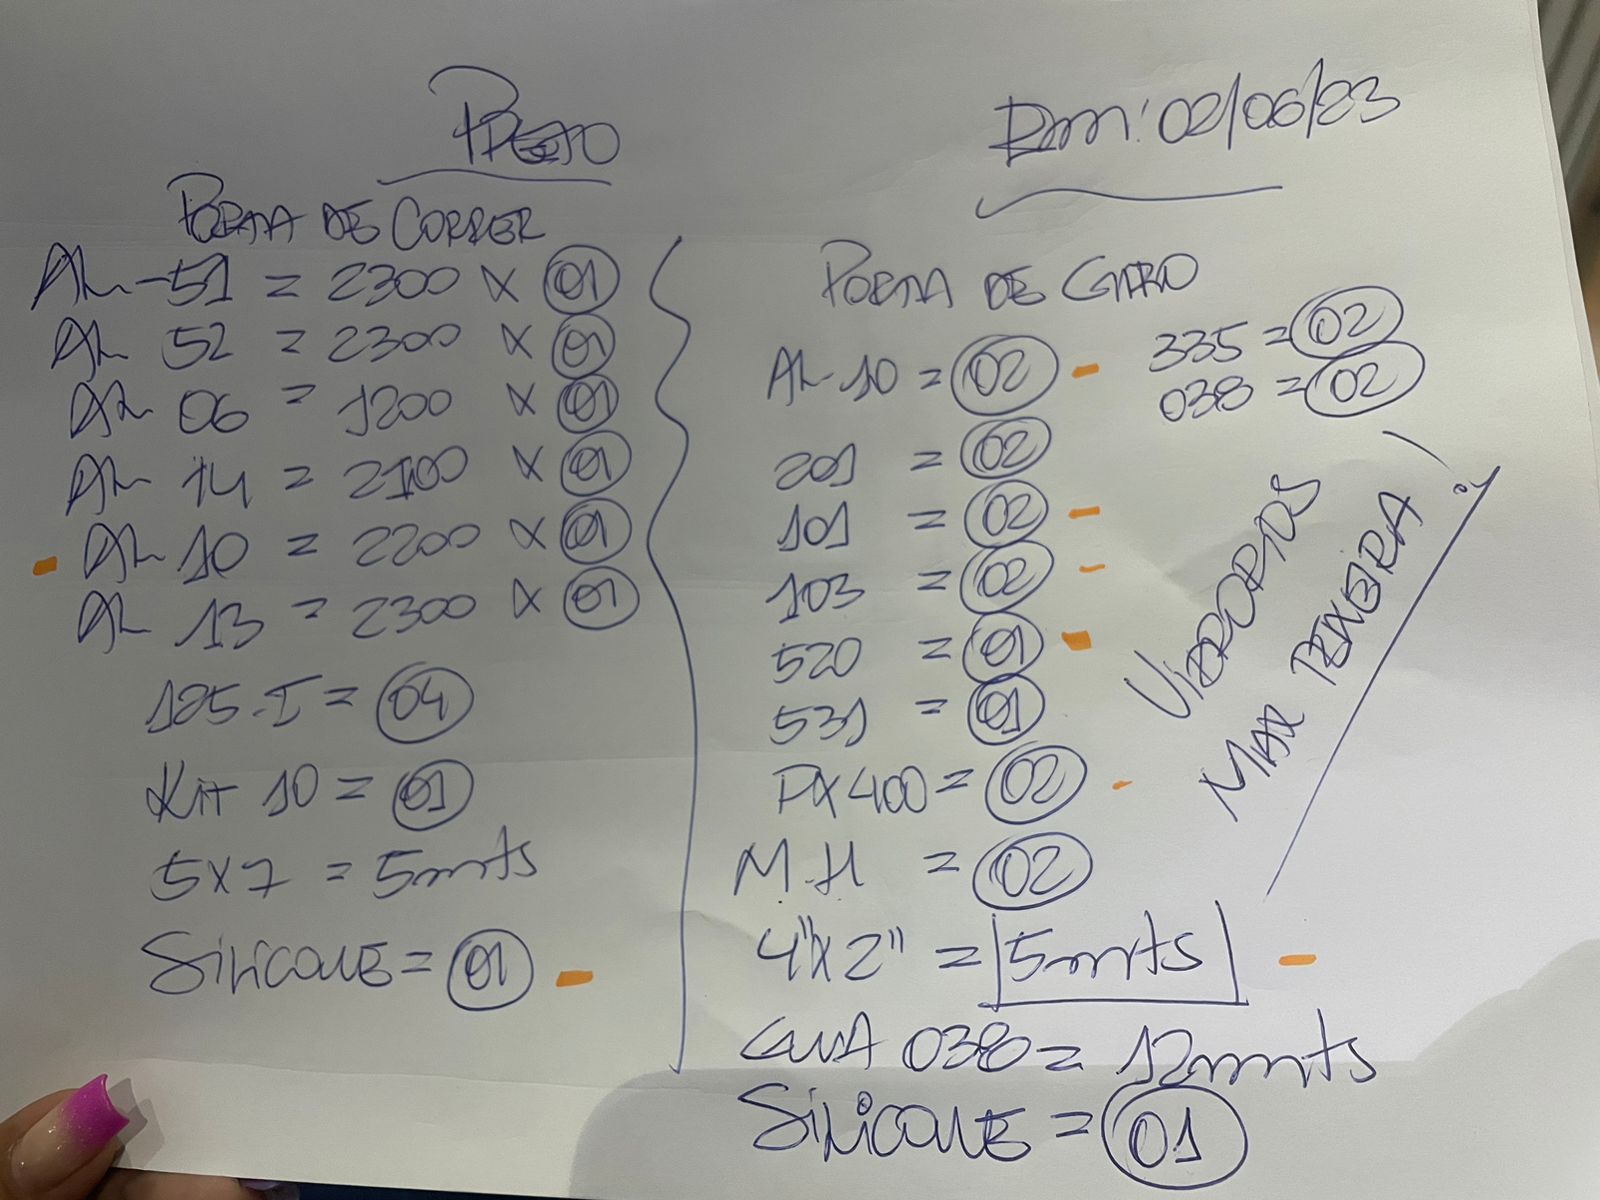 PRETO
Em: 02/06/23
PORTA DE CORRER
AL-51 = 2300 X 01
AL 52 = 2300 X 01
AL 06 = 1200 X 01
AL 14 = 2100 X 01
AL 10 = 2200 X 01
AL 13 = 2300 X 01
125.I = 04
Kit 10 = 01
5X7 = 5mts
SiliCONE = 01
PORTA DE GIRO
AL-10 = 02
335 = 02
038 = 02
201 = 02
101 = 02
103 = 02
520 = 01
531 = 01
PX400 = 02
M.H = 02
4"X2" = 5mts
GUIA 038 = 12mts
SiliCONE = 01
MAX